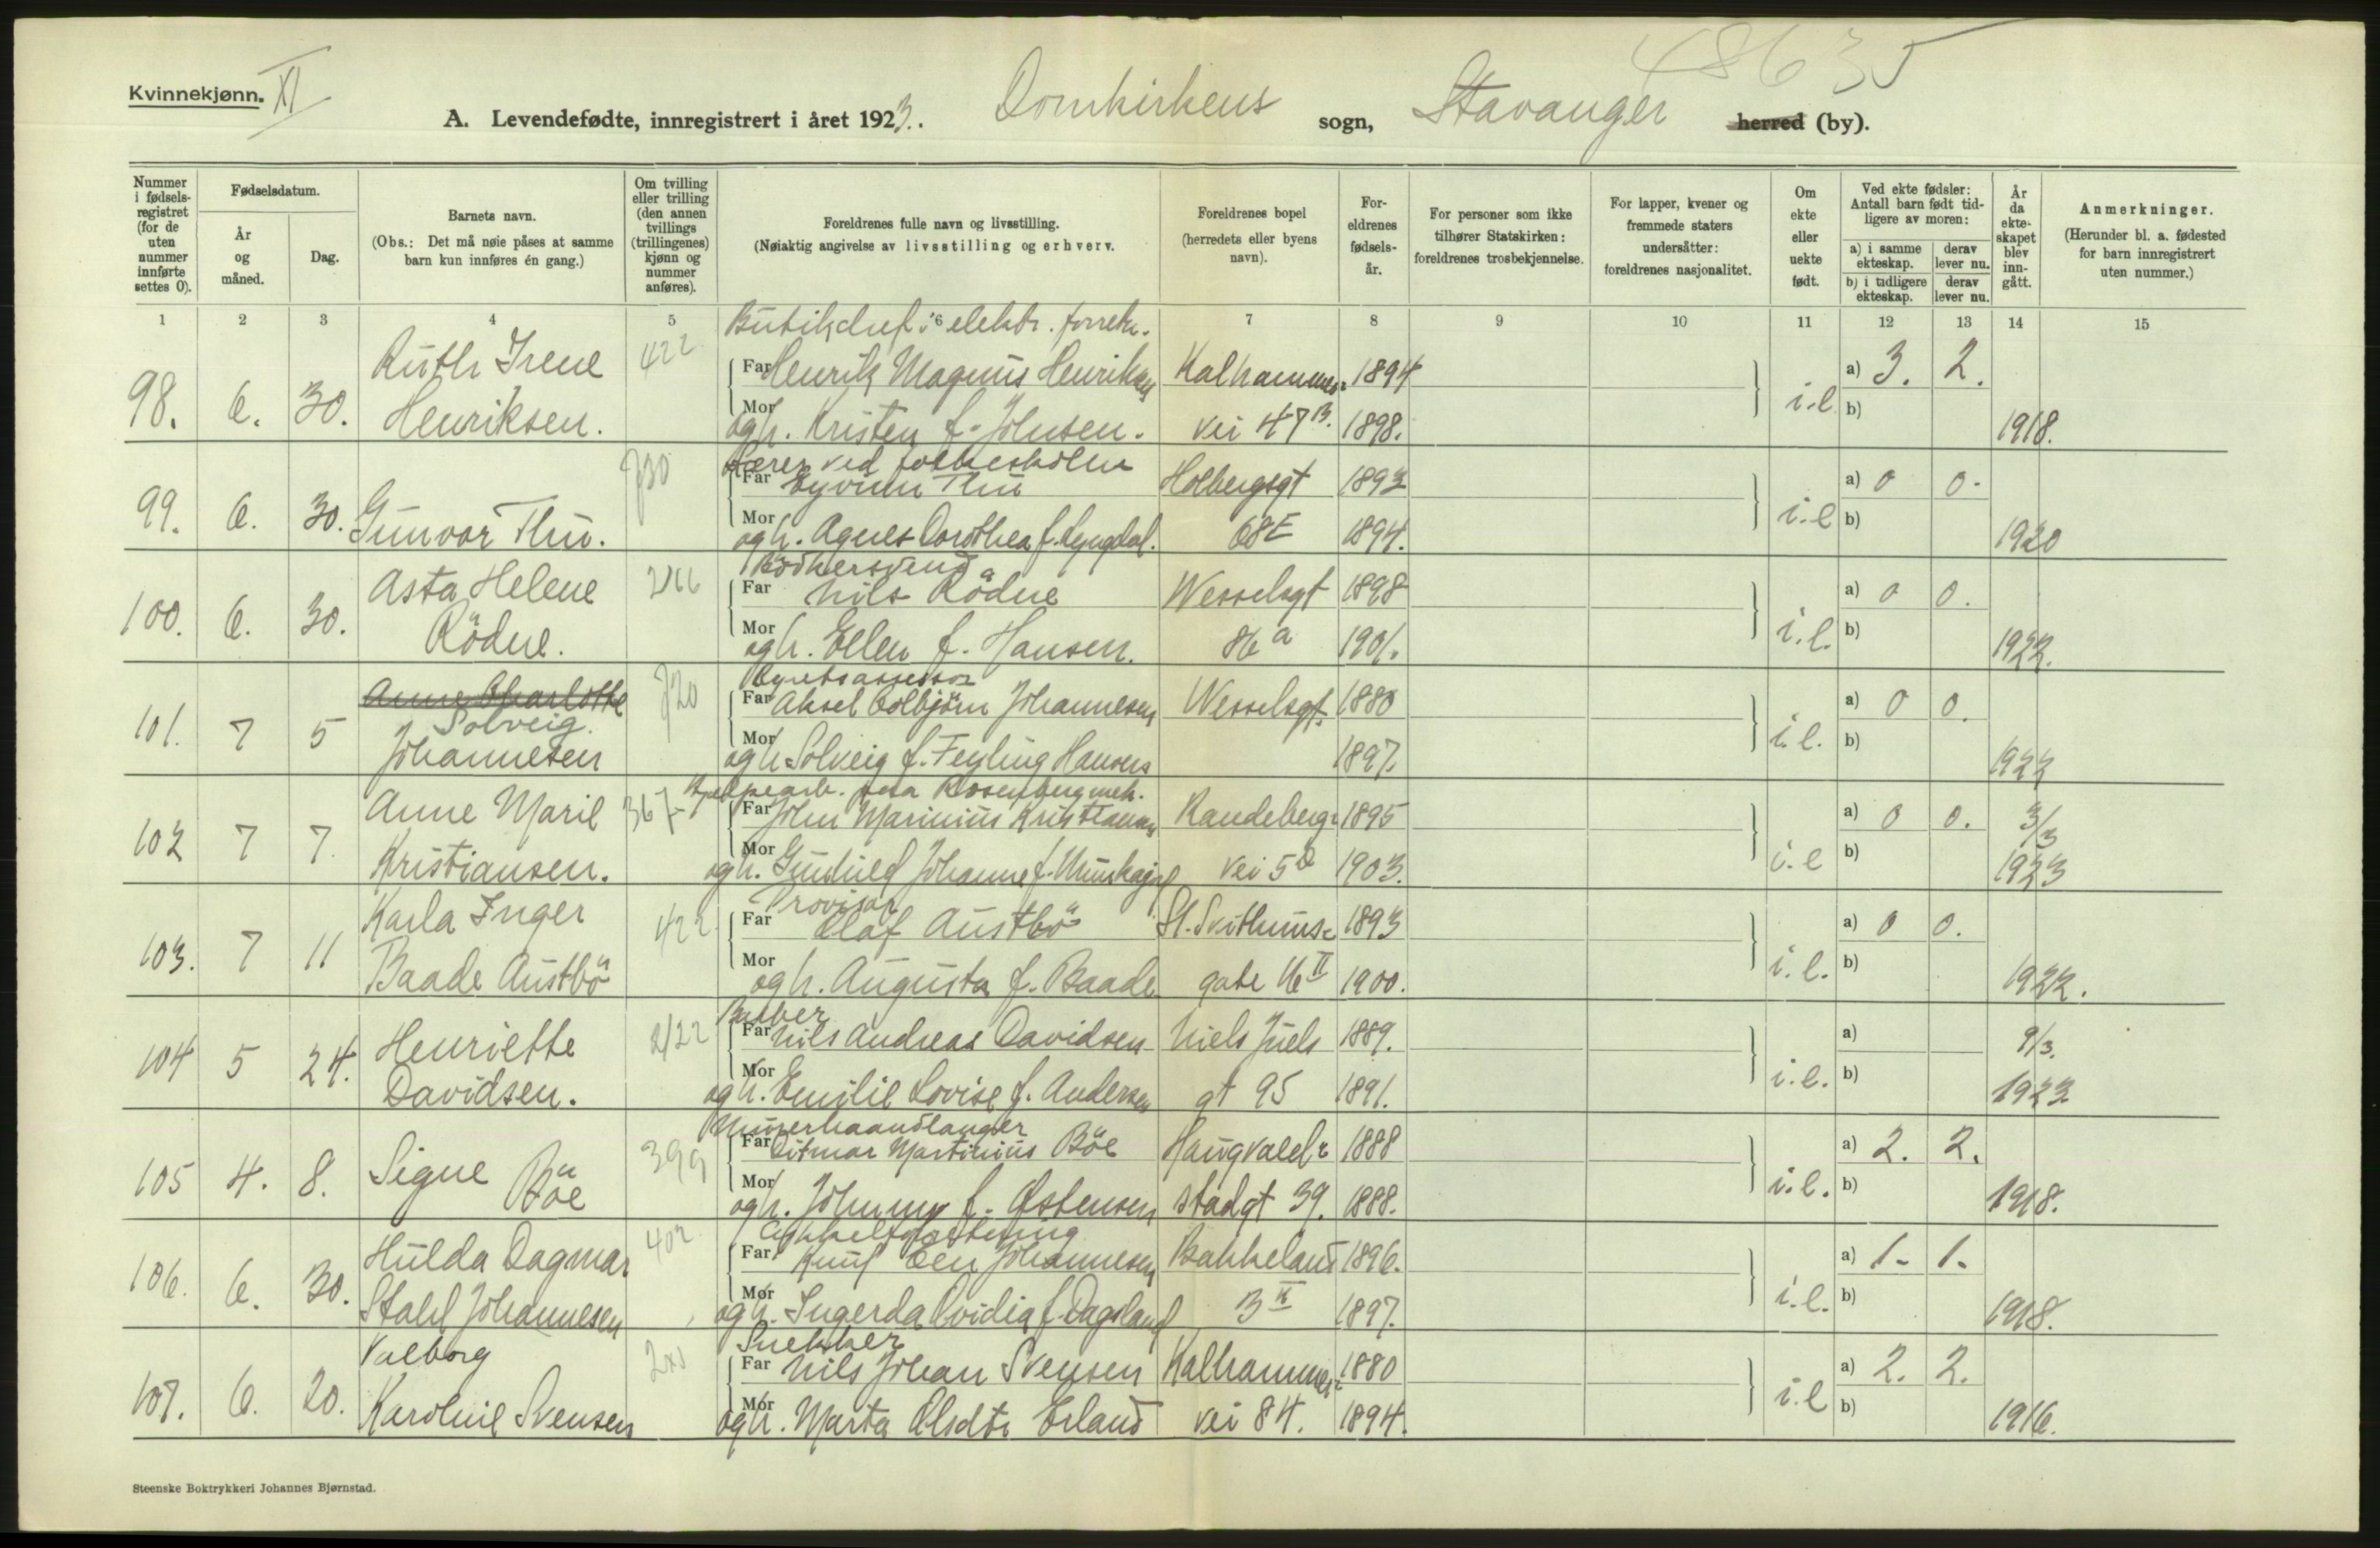 48635
Kvinnekjønn. XI
A. Levendefødte, innregistrert i året 1923. Domkirkens sogn, Stavanger herred (by).
Nummer i fødsels-registret (for de uten nummer innførte settes 0).
Fødselsdatum.
År og måned.
Dag.
Barnets navn.
(Obs.: Det må nøie påses at samme barn kun innføres én gang.)
Om tvilling eller trilling (den annen tvillings (trillingenes) kjønn og nummer anføres).
Foreldrenes fulle navn og livsstilling.
(Nøiaktig angivelse av livsstilling og erhverv.
Foreldrenes bopel (herredets eller byens navn).
For-eldrenes fødsels-år.
For personer som ikke tilhører Statskirken: foreldrenes trosbekjennelse.
For lapper, kvener og fremmede staters undersåtter: foreldrenes nasjonalitet.
Om ekte eller uekte født.
Ved ekte fødsler: Antall barn født tid-ligere av moren:
a) i samme ekteskap. derav lever nu.
b) i tidligere ekteskap. derav lever nu.
År da ekte-skapet blev inn-gått.
Anmerkninger.
(Herunder bl. a. fødested for barn innregistrert uten nummer.)
1 2 3 4 5 6 7 8 9 10 11 12 13 14 15
Butikchef i elektr. forretn.
Ruth Irene 422 Far Henrik Magnus Henriksen Kalhammer 1894 a) 3. 2.
98. 6. 30. Henriksen. Mor og h. Kristen f. Johnsen. vei 47 B. 1898. i.e b) 1918.
Lærer ved folkeskolen
Far Eyvind Thu Holbergsgt 1893 a) 0 0.
99. 6. 30. Gunvor Thu. Mor og h. Agnes Dorothea f. Lyngdal. 68E 1894. i.e b) 1920
Bödkersvend
Asta Helene 266 Far Nils Rödne Wesselsgt 1898 a) 0 0.
100. 6. 30. Rödne. Mor og h. Ellen f. Hansen. 86 a 1901. i.e. b) 1922.
Byretsassessor
Anne Charlotte 720 Far Aksel Colbjörn Johannesen Wesselsgt. 1880 a) 0 0.
Solveig.
101. 7 5 Johannesen Mor og h Solveig f. Feyling Hansen 1897. i.e. b) 1922
Hjelpearb. paa Rosenberg mek.
Anne Maril 367 Far John Marinius Kristiansen Randeberg 1895 a) 0 0. 3/3
102 7 7. Kristiansen. Mor og h. Gunhild Johanne f. vei 5 1903. i.e b) 1923
Provisor
Karla Inger 422 Far Olaf Austbö St. Svithuns 1893 a) 0 0.
103. 7 11 Baade Austbö Mor og h. Augusta f. Baade gate 16 II 1900. i.e. b) 1922.
Barber
Henriette 2/22 Far Nils Andreas Davidsen Niels Juels 1889. a) 9/3.
104 5 24. Davidsen. Mor og h. Emilie Lovise f. Andersen gt 95 1891. i.e. b) 1923
Murerhaandlanger
Signe 399 Far Ditmar Martinius Böe Haugvald 1888 a) 2. 2.
105 4. 8. Böe Mor og h. Johanne f. Østensen stadgt 39. 1888. i.e. b) 1918.
Hulda Dagmar 402 Far Knut Johannesen Bakkeland 1896. a) 1. 1.
106. 6. 30. Stahl Johannesen Mor og h. Ingerda Ovidia f. Dagsland B II 1897. i.e. b) 1918.
Snekker
Valborg Far Nils Johan Svensen Kalhammer 1880 a) 2. 2.
107. 6. 20. Karoline Svensen Mor og h. Marta Olsdtr Erland vei 84. 1894. i.e b) 1916.
Steenske Boktrykkeri Johannes Bjørnstad.